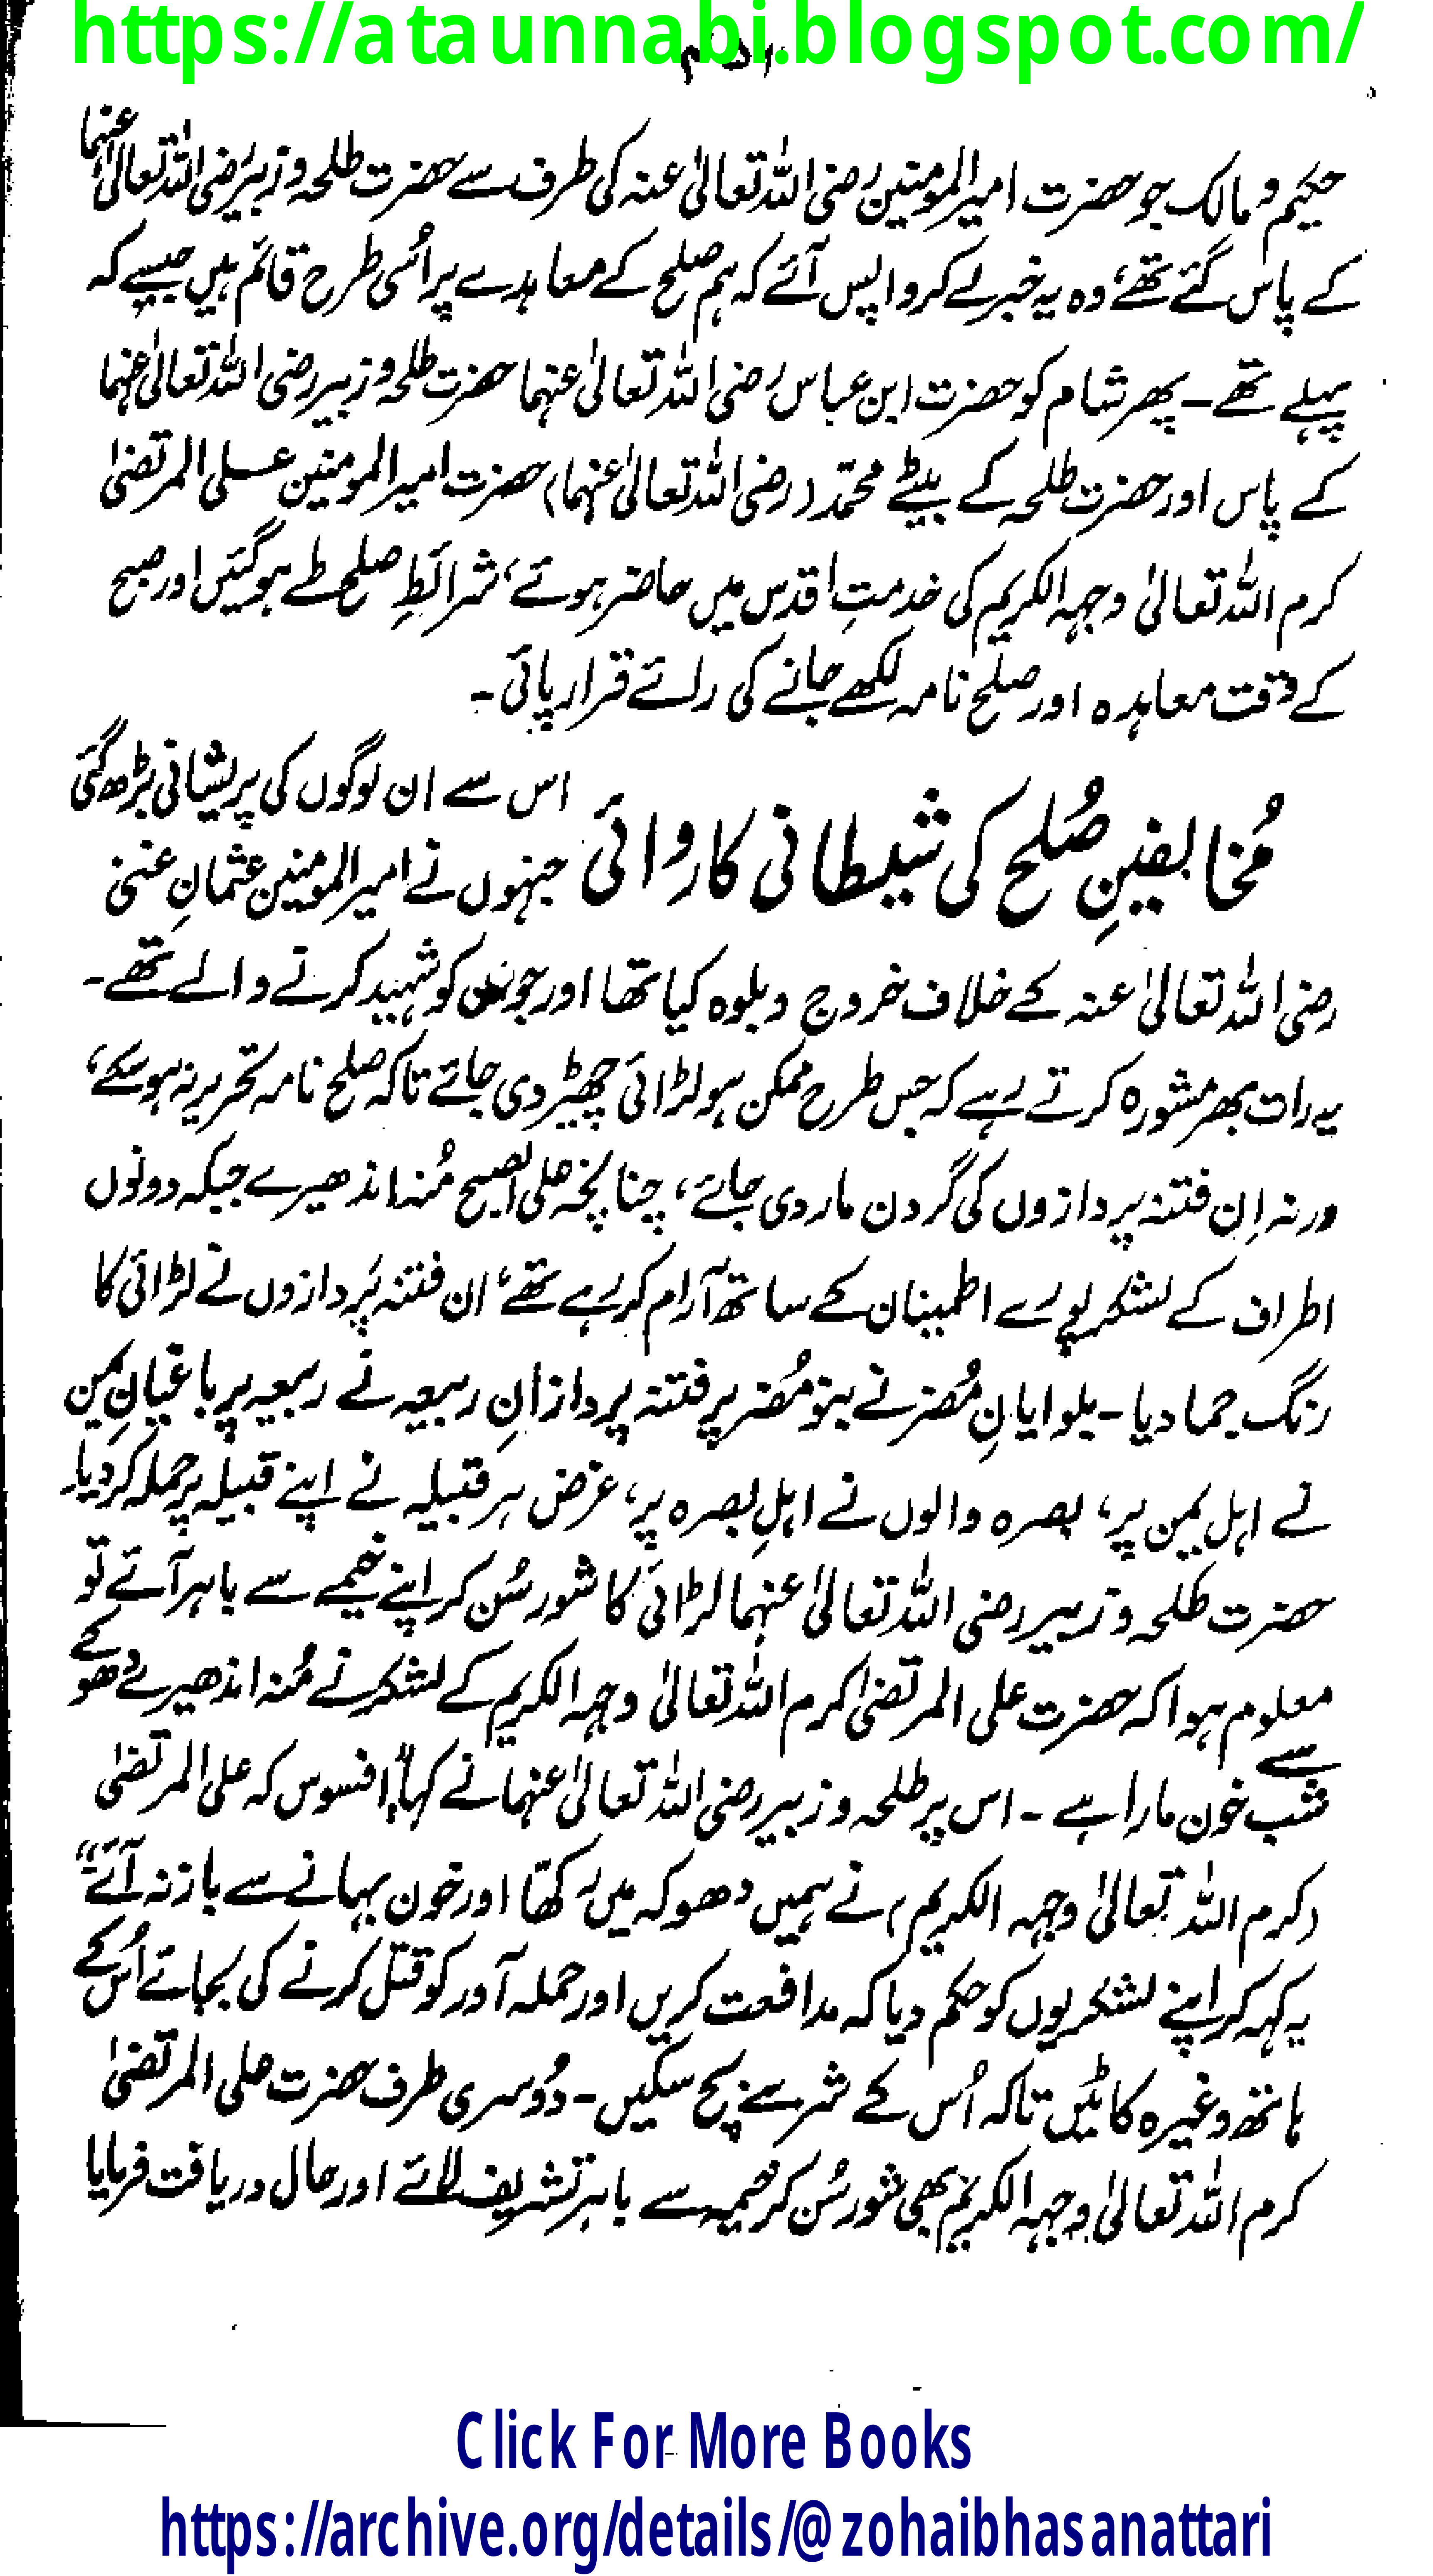 https://ataunnabi.blogspot.com/
حکیم و مالک جو حضرت امیر المومنین رضی اللہ تعالیٰ عنہ کی طرف سے حضرت طلحہ و زبیر رضی اللہ تعالیٰ عنہما
کے پاس گئے تھے، وہ یہ خبر لے کر واپس آئے کہ ہم صلح کے معاہدے پر اُسی طرح قائم ہیں جیسے کہ
پہلے تھے ۔ پھر شام کو حضرت ابن عباس رضی اللہ تعالیٰ عنہما حضرت طلحہ و زبیر رضی اللہ تعالیٰ عنہما
کے پاس اور حضرت طلحہ کے بیٹے محمّد (رضی اللہ تعالیٰ عنہما) حضرت امیر المومنین علی المرتضیٰ
کرم اللہ تعالیٰ وجہہ الکریم کی خدمتِ اقدس میں حاضر ہوئے، شرائطِ صلح طے ہوگئیں اور صبح
کے وقت معاہدہ اور صلح نامہ لکھے جانے کی رائے قرار پائی ۔
مُخالفینِ صُلح کی شیطانی کاروائی
اس سے ان لوگوں کی پریشانی بڑھ گئی
جنہوں نے امیر المومنین عثمانِ غنی
رضی اللہ تعالیٰ عنہ کے خلاف خروج و بلوہ کیا تھا اور جو ان کو شہید کرنے والے تھے ۔
یہ رات بھر مشورہ کرتے رہے کہ جس طرح ممکن ہو لڑائی چھیڑ دی جائے تاکہ صلح نامہ تحریر نہ ہو سکے،
ورنہ اِن فتنہ پردازوں کی گردن مار دی جائے، چنانچہ علی الصبح مُنہ اندھیرے جبکہ دونوں
اطراف کے لشکر پورے اطمینان کے ساتھ آرام کر رہے تھے، ان فتنہ پَردازوں نے لڑائی کا
رنگ جما دیا ۔ بلوایانِ مُضر نے بنو مُضر پر فتنہ پردازانِ ربیعہ نے ربیعہ پر باغیانِ یمن
نے اہلِ یمن پر، بصرہ والوں نے اہلِ بصرہ پر، غرض ہر قبیلہ نے اپنے قبیلہ پر حملہ کردیا۔
حضرت طلحہ و زبیر رضی اللہ تعالیٰ عنہما لڑائی کا شور سُن کر اپنے خیمے سے باہر آئے تو
معلوم ہوا کہ حضرت علی المرتضیٰ کرم اللہ تعالیٰ وجہہ الکریم کے لشکر نے مُنہ اندھیرے دھوکے سے
شب خون مارا ہے ۔ اس پر طلحہ و زبیر رضی اللہ تعالیٰ عنہما نے کہا "افسوس کہ علی المرتضیٰ
(کرم اللہ تعالیٰ وجہہ الکریم) نے ہمیں دھوکہ میں رکھّا اور خون بہانے سے باز نہ آئے"
یہ کہہ کر اپنے لشکریوں کو حکم دیا کہ مدافعت کریں اور حملہ آور کو قتل کرنے کی بجائے اُس کے
ہاتھ وغیرہ کاٹیں تاکہ اُس کے شر سے بچ سکیں ۔ دُوسری طرف حضرت علی المرتضیٰ
کرم اللہ تعالیٰ وجہہ الکریم بھی شور سُن کر خیمہ سے باہر تشریف لائے اور حال دریافت فرمایا
Click For More Books
https://archive.org/details/@zohaibhasanattari